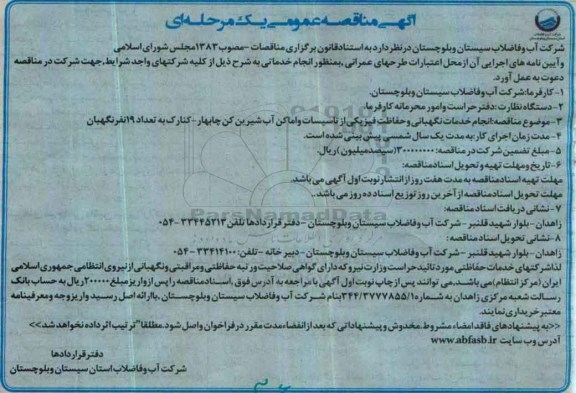 آگهی مناقصه عمومی یک مرحله ای
شرکت آب وفاضلاب سیستان وبلوچستان درنظردارد به استنادقانون برگزاری مناقصات -مصوب ۱۳۸۳مجلس شورای اسلامی
وآیین نامه های اجرایی آن از محل اعتبارات طرحهای عمرانی ،بمنظور انجام خدماتی به شرح ذیل از کلیه شرکتهای واجد شرایط،جهت شرکت در مناقصه
دعوت به عمل آورد.
۱-کارفرما:شرکت آب وفاضلاب سیستان وبلوچستان.
۲-دستگاه نظارت :دفترحراست وامور محرمانه کارفرما.
۳- موضوع مناقصه:انجام خدمات نگهبانی وحفاظت فیزیکی از تاسیسات واماکن آب شیرین کن چابهار-کنارک به تعداد ۱۹نفرنگهبان
۴- مدت زمان اجرای کار:به مدت یک سال شمسی پیش بینی شده است.
۵-مبلغ تضمین شرکت در مناقصه:۳۰۰۰۰۰۰۰۰(سیصدمیلیون)ریال.
۶-تاریخ ومهلت تهیه و تحویل اسنادمناقصه:
مهلت تهیه اسنادمناقصه به مدت هفت روز از انتشار نوبت اول آگهی می باشد.
مهلت تحویل اسنادمناقصه از آخرین روز توزیع اسناد ده روز می باشد.
۷-نشانی دریافت اسنادمناقصه:
زاهدان - بلوار شهید قلنبر - شرکت آب وفاضلاب سیستان وبلوچستان -دفتر قراردادها تلفن ۳۳۴۴۵۲۱۳-۰۵۴
۸-نشانی تحویل اسنادمناقصه:
زاهدان - بلوار شهید قلنبر - شرکت آب وفاضلاب سیستان وبلوچستان - دبیر خانه -تلفن:۳۳۴۱۴۱۰۰-۰۵۴
لذاشرکتهای خدمات حفاظتی مورد تائیدحراست وزارت نیرو که دارای گواهی صلاحیت ورتبه حفاظتی ومراقبتی ونگهبانی از نیروی انتظامی جمهوری اسلامی
ایران (مرکز انتظام)می باشند،می توانند پس از چاپ نوبت اول آگهی با مراجعه به آدرس فوق ،اسنادمناقصه را پس از واریز مبلغ ۲۰۰۰۰۰۰ریال به حساب بانک
رسالت شعبه مرکزی زاهدان به شماره ۳۴۴/۳۷۷۷۸۵۵/۱۰بنام شرکت آب وفاضلاب سیستان وبلوچستان ،باارائه اصل رسید واریزوجه ومعرفینامه
معتبر خریداری نمایند.
<<به پیشنهادهای فاقد امضاء مشروط ،مخدوش و پیشنهاداتی که بعد از انقضاء مدت مقرر در فراخوان واصل شود،مطلقا" ترتیب اثر داده نخواهد شد>>
آدرس وب سایت www.abfasb.ir
دفتر قراردادها
شرکت آب وفاضلاب استان سیستان وبلوچستان
ParsNamadData